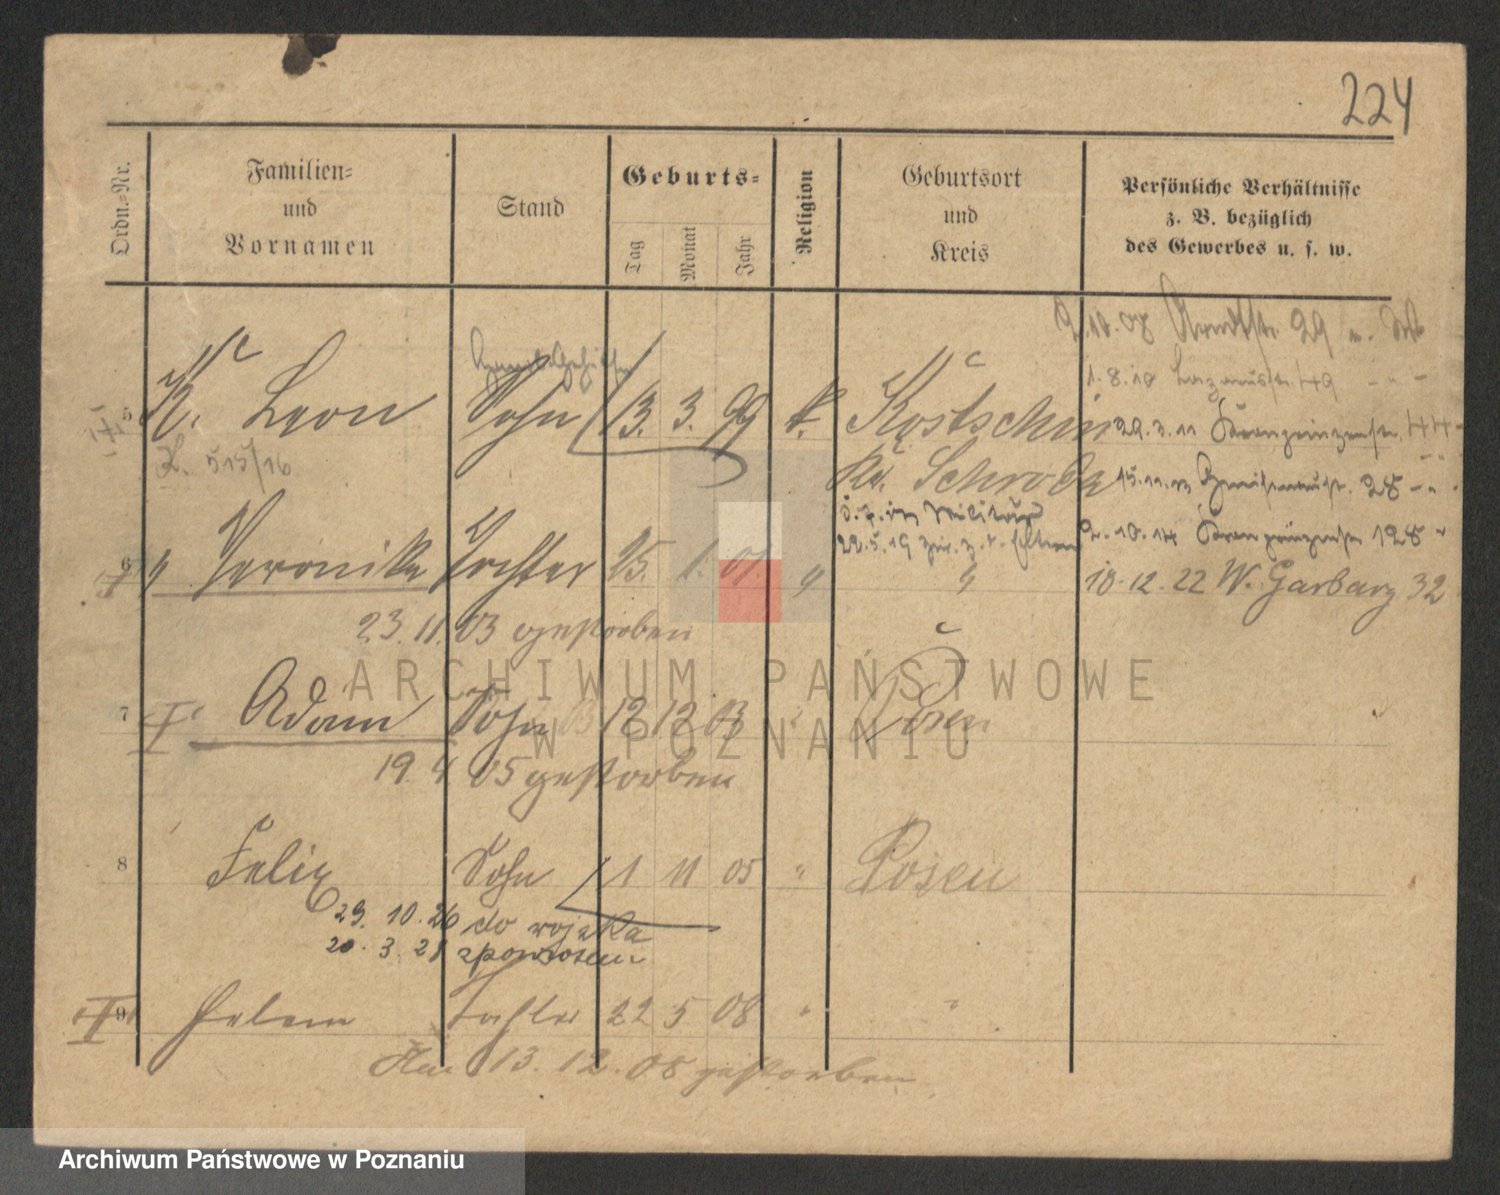 224
Ordn.-Nr.
Familien-
und
Vornamen
Stand
Geburts-
Tag
Monat
Jahr
Religion
Geburtsort
und
Kreis
Persönliche Verhältnisse
z. B. bezüglich
des Gewerbes u. s. w.
2.10.08 29
1.8.10 49
5 K. Leon Sohn 13. 3. 99 k. Kostschin 29.3.11 Kronprinzenstr. 44
K. 515/16
Kr. Schroda 28
Militär
22.5.19 zur. z. d. Eltern 2.10.14 Kronprinzenstr 128
6 " Veronika Tochter 25. 1. 01. " " 10.12.22 W. Garbary 32
23. 11. 03 gestorben
7 Adam Sohn 12 12 03 " Posen
19. 4 05 gestorben
8 Felix Sohn 1 11 05 " Posen
29. 10. 26 do wojska
20. 3. 28 z powrotem
9 Helene Tochter 22 5 08 " "
Am 13. 12. 08 gestorben
ARCHIWUM PAŃSTWOWE
W POZNANIU
Archiwum Państwowe w Poznaniu